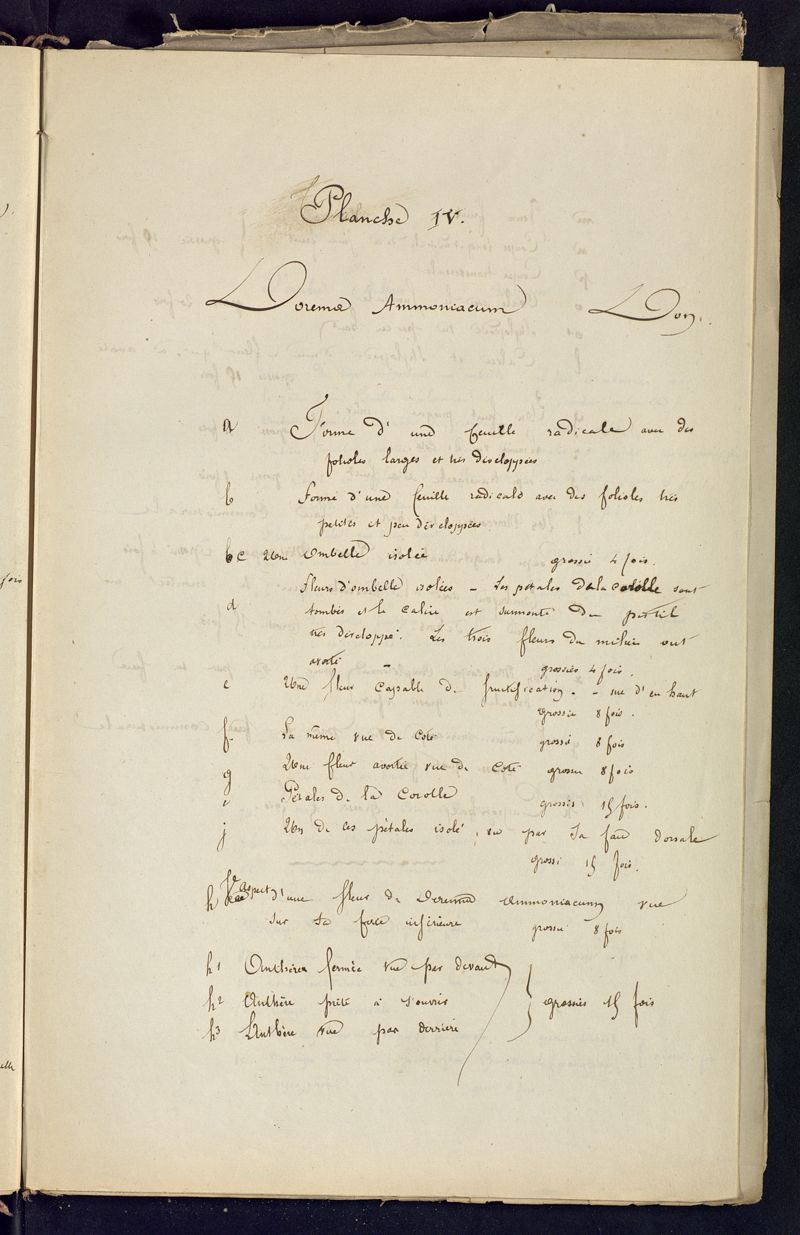 Planche IV.
Dorema Ammoniacum Don.
a Forme d'une feuille radicale avec des
folioles larges et très développées
b Forme d'une feuille radicale avec des folioles très
petites et peu développées
c Ombelle isolée grossie 4 fois.
Fleurs d'ombelle isolées - Les pétales de la corolle sont
d tombés et le calice est surmonté du pistil
très développé. Les trois fleurs du milieu ont
avorté - grossies 4 fois.
e Une fleur capable de fructification - vue d'en haut
Grossie 8 fois.
f La même vue de coté grossie 8 fois
g Une fleur avortée vue de coté grossie 8 fois
i Pétales de la Corolle grossis 15 fois.
j Un de ces pétales isolé, vu par sa face dorsale
grossi 15 fois.
h aspect d'une fleur de Dorema Ammoniacum vue
sur sa face inférieure grossie 8 fois
h1 Anthère fermée vue par devant
h2 Anthère prête à s'ouvrir grossies 15 fois
h3 Anthère vue par derrière
fois
elle